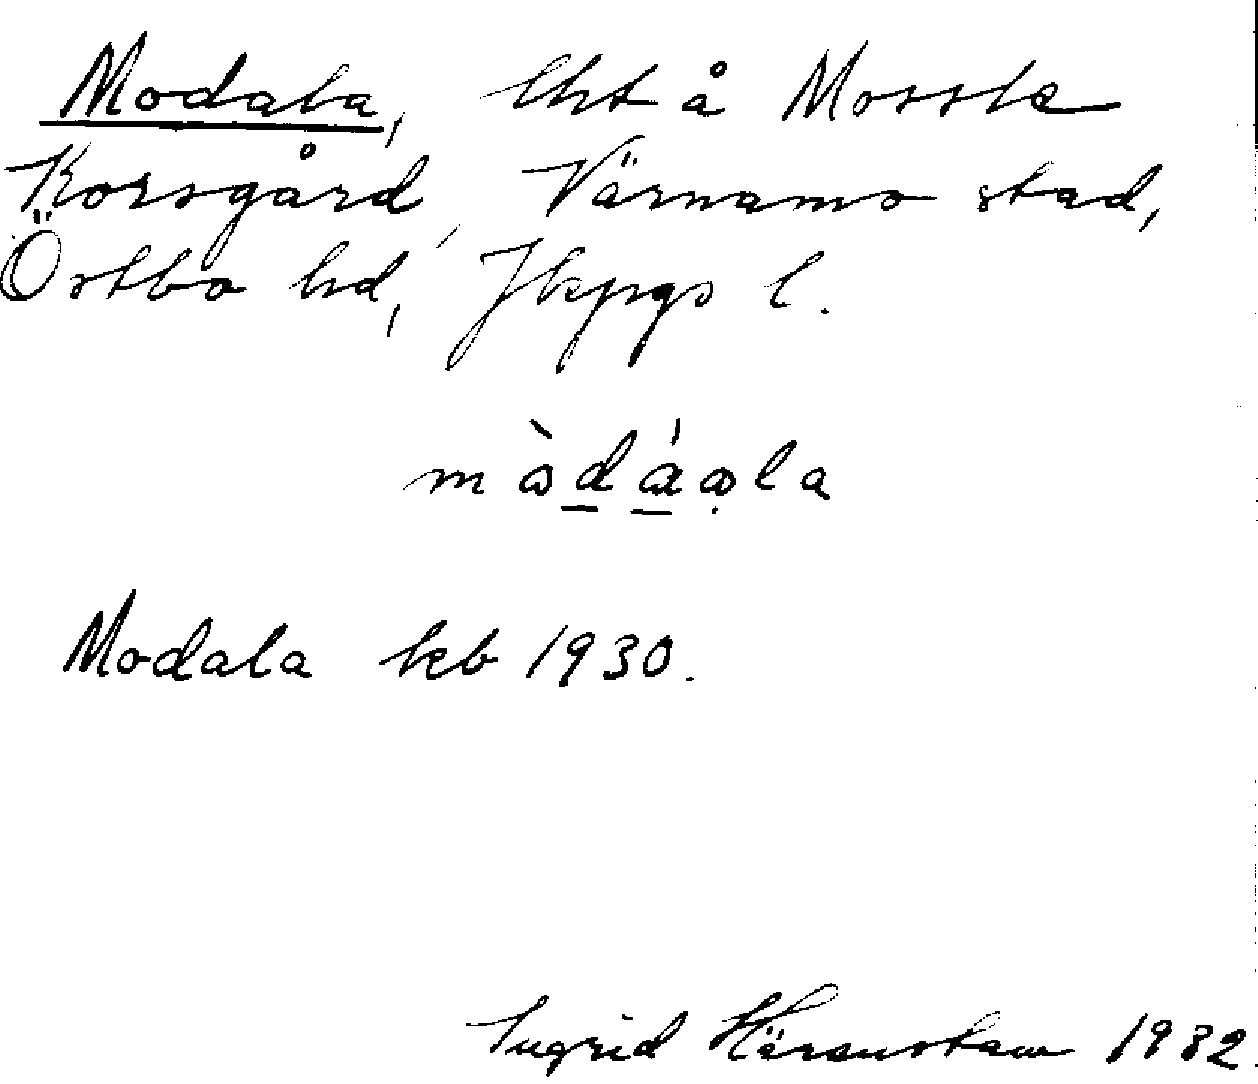 Modala, lht å Mossle
Korsgård, Värnamo stad,
Östbo hd, Jkpgs l.
Modala kb 1930.
Ingrid 1932